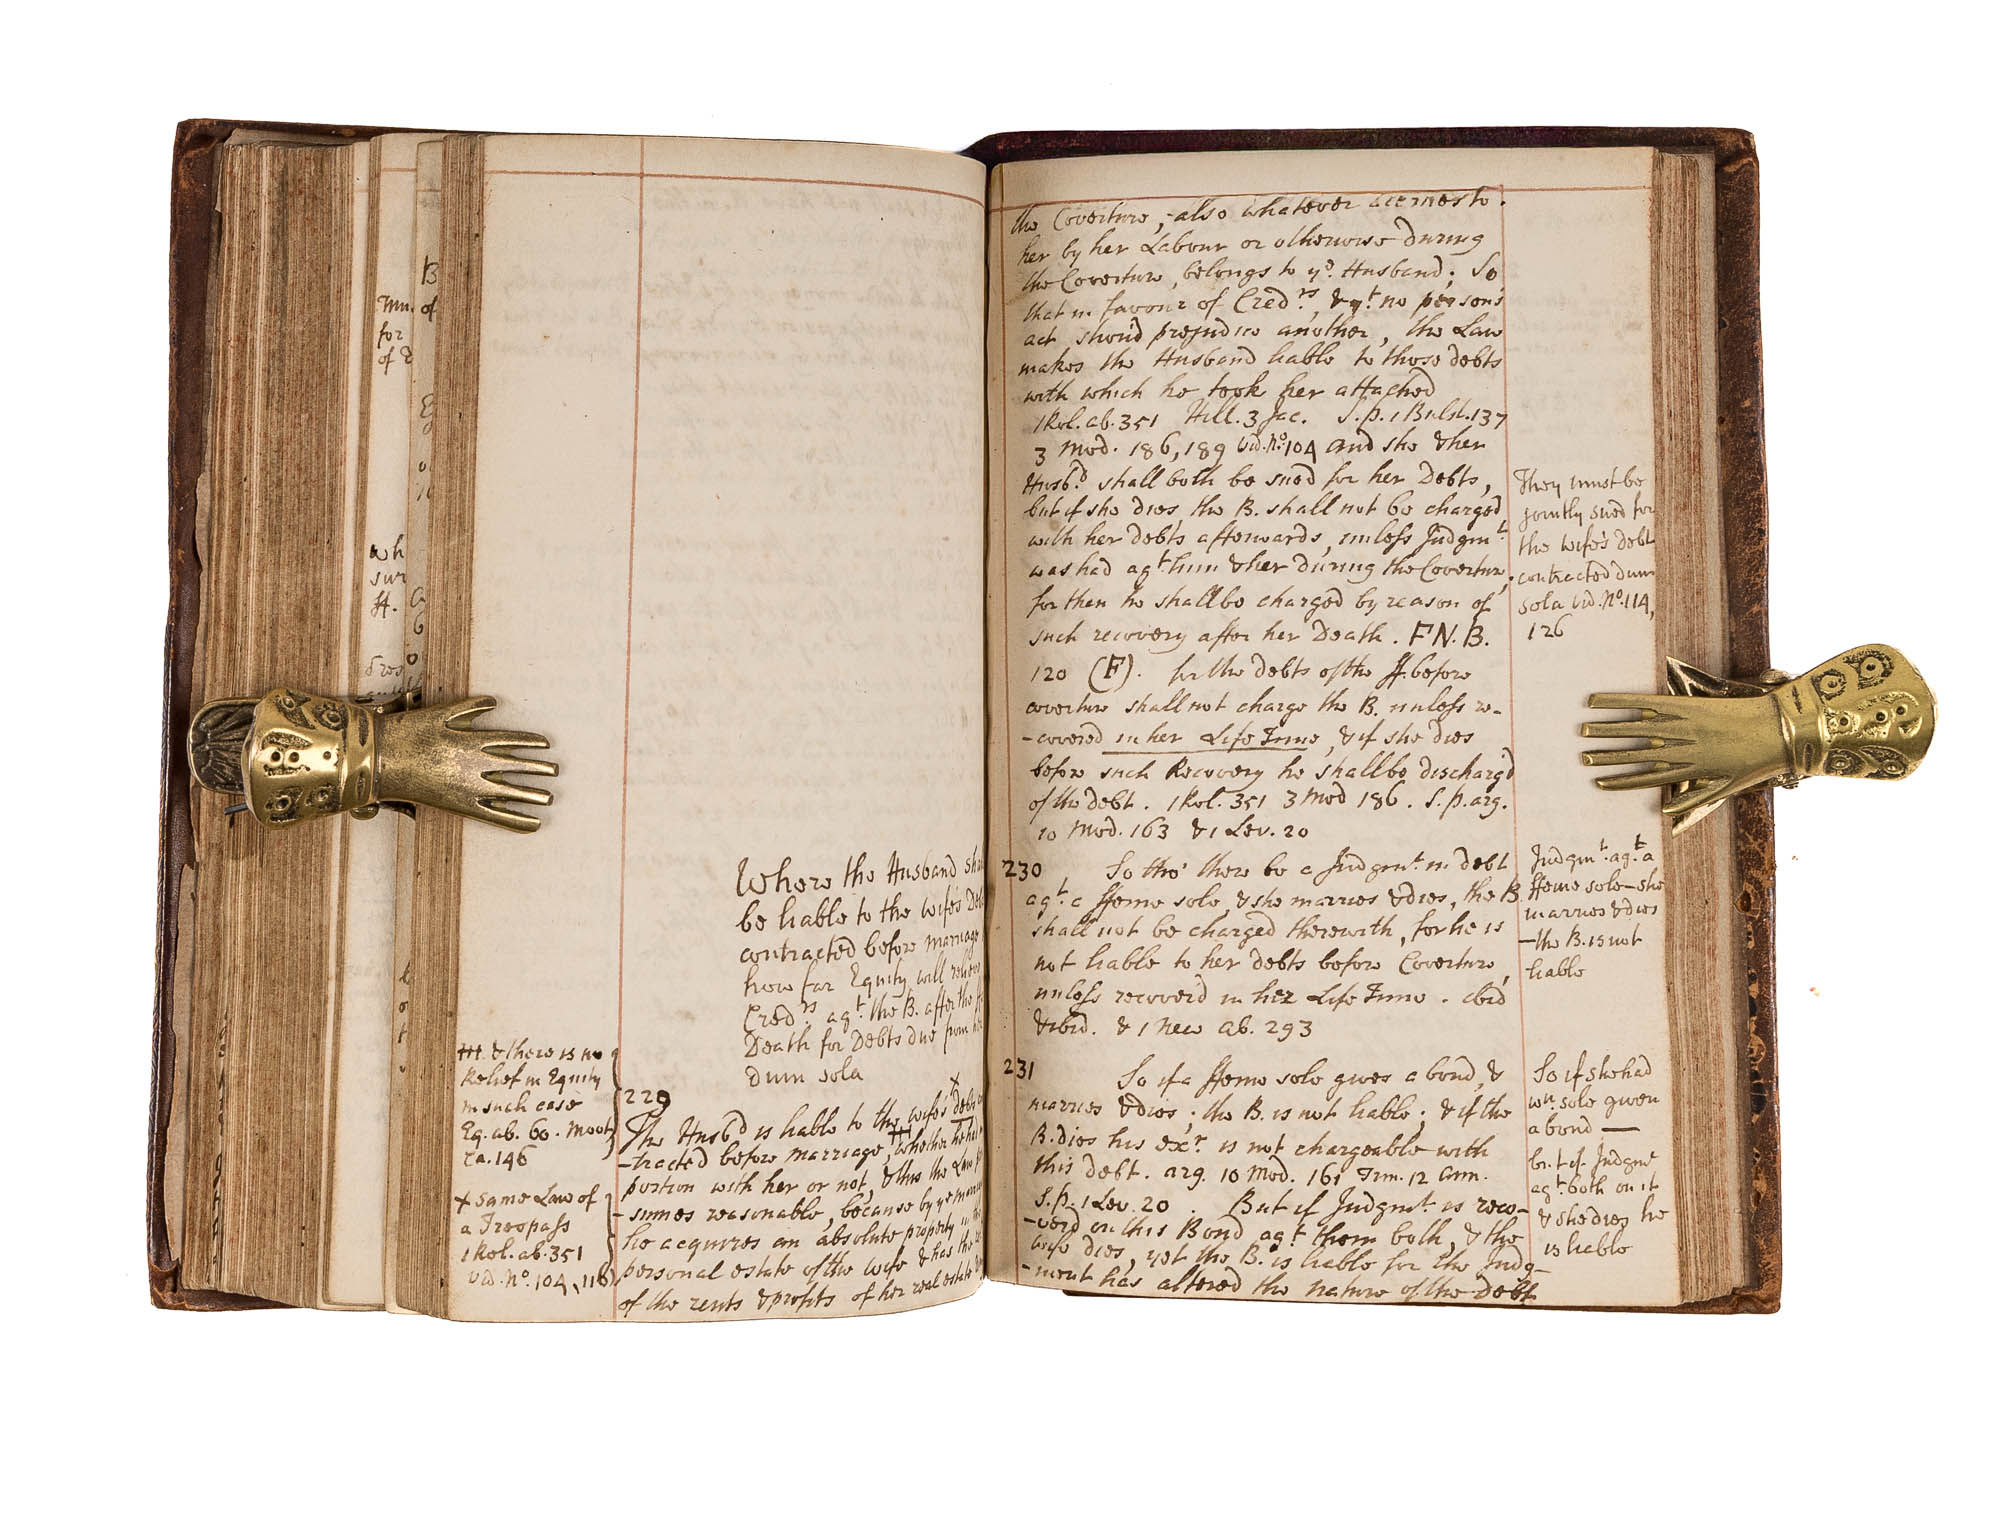 Where the Husband
be liable to the wife's
contracted before marriage
how far Equity will
Cred.rs ag.t the B. after the
Death for Debts due from
dum sola
229
The Husb.d is liable to the wife's debts
-tracted before marriage, whether he
portion with her or not, & this the Law
-sumes reasonable, because by ye
he acquires an absolute property in
personal estate of the wife & has the
of the rents & profits of her real estate
& there is no
Relief in Equity
in such case
Eq. ab. 60. Moor
ca. 146
x same Law of
a Trespass
1 Rol. ab. 351
vid. No. 104, 116
the Coverture, also whatever accrues to
her by her Labour or otherwise during
the Coverture, belongs to ye. Husband; So
that in favour of Cred.rs, & yt. no person's
act shou'd prejudice another, the Law
makes the Husband liable to those debts
with which he took her attached
1 Rol. ab. 351 Hill. 3 Jac. S. p. 1 Bulst. 137
3 Mod. 186, 189 Vid. No. 104 and she & her
Husb.d shall both be sued for her Debts,
but if she dies, the B. shall not be charged
with her debts afterwards, unless Judgm.t
was had ag.t him & her during the Coverture,
for then he shall be charged by reason of
such recovery after her Death. F N. B.
120 (F). for the debts of the ff. before
coverture shall not charge the B. unless re-
-covered in her Life Time, & if she dies
before such Recovery he shall be discharg'd
of the debt. 1 Rol. 351 3 Mod 186. S. p. arg.
10 Mod. 163 & 1 Lev. 20
They must be
jointly sued for
the wife's debt
contracted dum
sola Vid. No. 114,
126
230 So tho' there be a Judgm.t in debt
ag.t a ffeme sole, & she marries & dies, the B.
shall not be charged therewith, for he is
not liable to her debts before Coverture,
unless recover'd in her Life Time. ibid
& ibid. & 1 New ab. 293
Judgm.t ag.t a
ffeme sole - she
marries & dies
- the B. is not
liable
231 So if a ffeme sole gives a bond, &
marries & dies; the B. is not liable; & if the
B. dies his exr. is not chargeable with
this debt. arg. 10 Mod. 161 Trin. 12 Ann.
S. p. 1 Lev. 20. But if Judgm.t is reco-
-ver'd on this Bond ag.t them both, & the
wife dies, yet the B. is liable for the Judg-
-ment has altered the nature of the Debt
So if she had
wn. sole given
a bond —
but if Judgmt
ag.t both on it
& she dies he
is liable